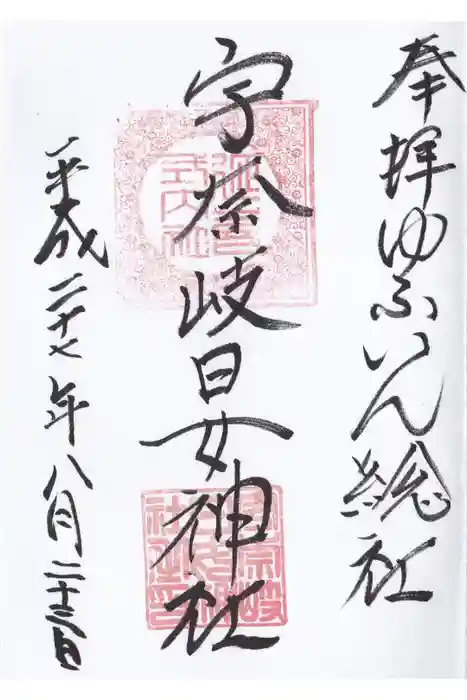 奉拝ゆふいん総社
宇奈岐日女神社
平成二十七年八月二十三日
延喜
式内社